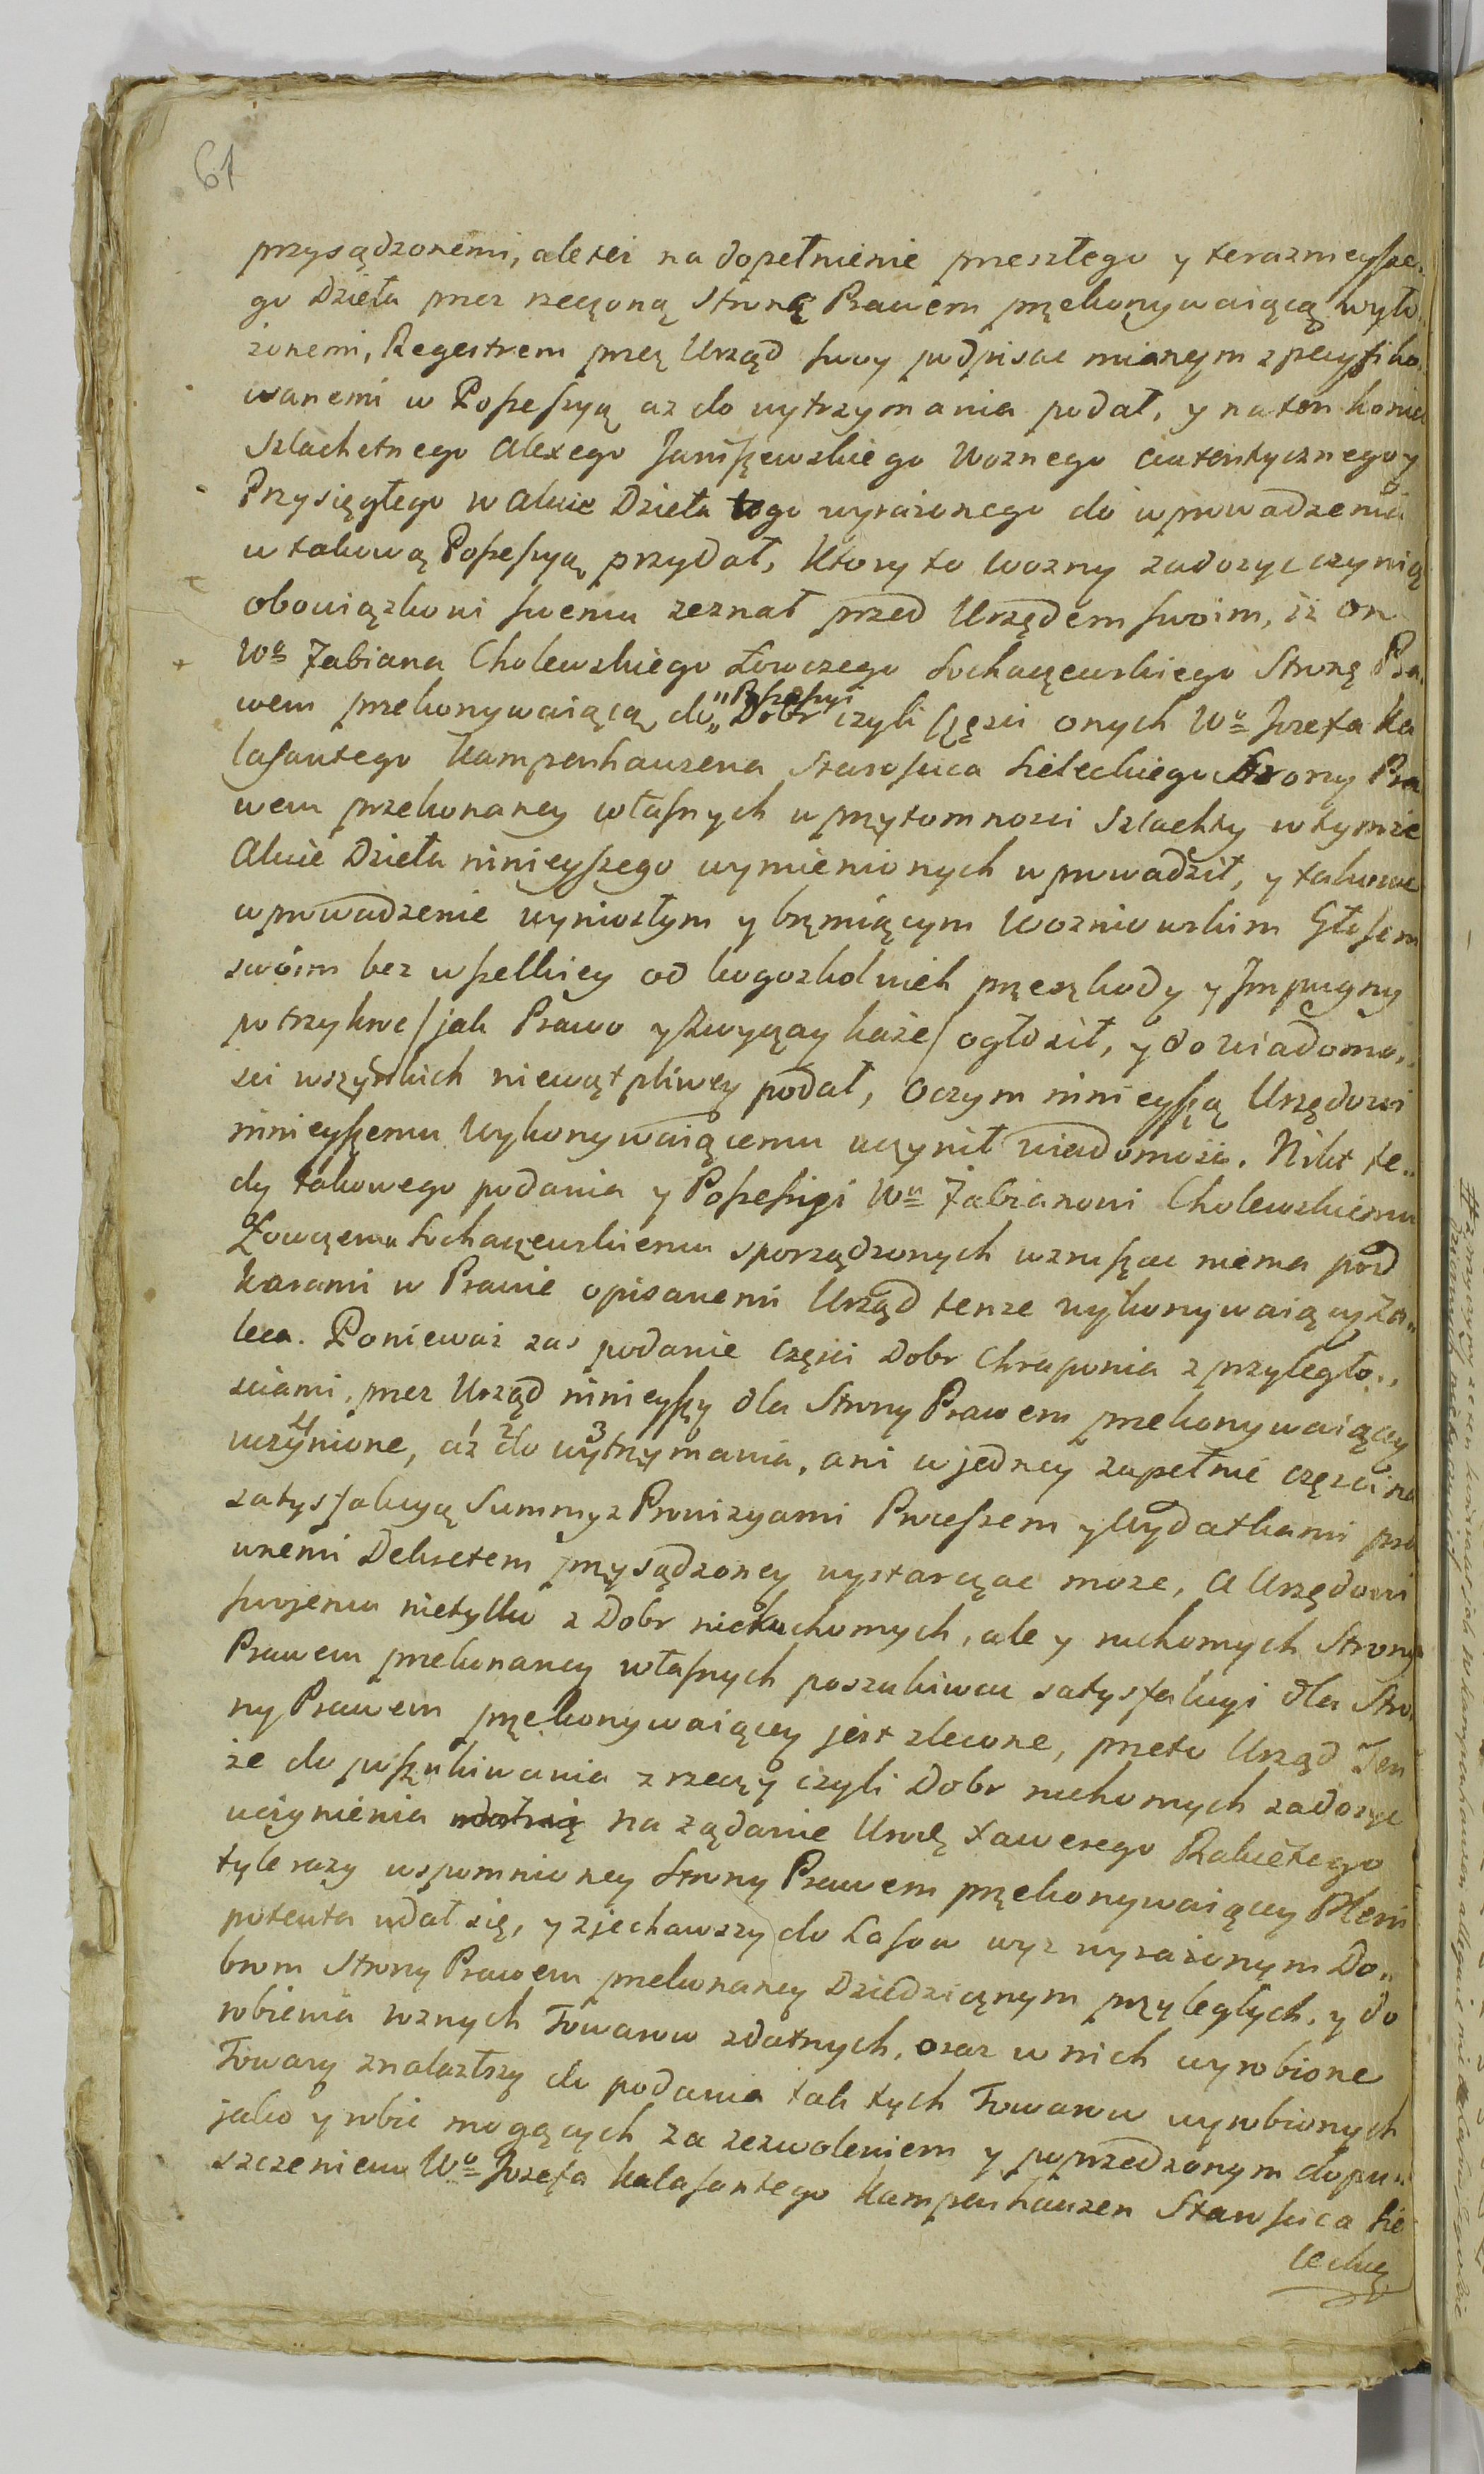 61
przysądzonemi, alexei na dopełnienie przeszłego y teraznieyſze„
go Dzieła przez rzeczoną Stronę Prawem przekonywaiącą wyło„
żonemi, Regestrem przez Urząd swoy podpisac mianym zpecyfiko„
wanemi w Poſseſsyą az do wytrzymania podał, y na ten koniec
Szlachetnego Alexego Janiſzewskiego Woznego Autentycznego y
Przysięgłego w Akcie Dzieła tego wyrażonego do wprowadzenia
w takową Poſseſsyą przydał, Ktory to Wozny zadosyc czyniąc
obowiązkowi swemu zeznał przed Urzędem swoim, iż on
Wo Fabiana Cholewskiego Łowczego Sochaczewskiego Stronę Pra„
wem przekonywaiącą do „Poſseſsyi„ Dobr czyli częsci onych Wo Jozefa Ka
laſantego Kampenhauzena Staroſcica Kieleckiego Strony Pra
wem przekonaney właſnych w przytomnosci Szlachty w tymze
Akcie Dzieła ninieyſzego wymienionych wprowadził, y takowe
wprowadzenie wyniosłym y brzmiącym Wozniowskim Głoſem
swoim bez wſzelkiey od kogozkolwiek przeszkody y Impugny
potrzykroc / jak Prawo y Zwyczay każe / ogłosił, y do wiadomo„
sci wszystkich niewątpliwey podał, O czym ninieyſzą Urzędowi
ninieyſzemu Wykonywaiącemu uczynił wiadomośc. Nikt te„
dy takowego podania y Poſseſsyi Wu Fabianowi Cholewskiemu
Łowczemu Sochaczewskiemu sporządzonych wzruſzac niema pod
karami w Prawie opisanemi Urząd tenze wykonywaiący za„
leca. Ponieważ zas podanie części Dobr Chraponia z przyległo„
sciami, przez Urząd ninieyſzy dla Strony Prawem przekonywaiącey
4 1 2 3
uczynione, aż do wytrzymania, ani w jedney zupełnie częsci na
satysfakcyą Summy z Prowizyami Proceſsem y Wydatkami pra
wnemi Dekretem przysądzoney wystarczac moze, A Urzędowi
swojemu nietylko z Dobr nieruchomych, ale y ruchomych Strony
Prawem przekonaney właſnych poszukiwac satysfakcyi dla Stro
ny Prawem przekonywaiącey jest zlecone, przeto Urząd Ten
że do poſzukiwania z rzeczy czyli Dobr ruchomych zadosyc
uczynienia na żądanie Xawerego Rakietego
tyle razy wspomnioney Strony Prawem przekonywaiącey Pleni
potenta udał się, y zjechawszy do Laſow wyz wyrażonym Do„
brom Strony Prawem przekonaney Dziedzicznym przyległych, y do
robienia roznych Towarow zdatnych, oraz w nich wyrobione
Towary znalazłszy do podania tak tych Towarow wyrobionych
jako y robic mogących za zezwoleniem y poprzedzonym dopu„
szczeniem Wo Jozefa Kalaſantego Kampenhauzen Staroſcica Kie
leckie